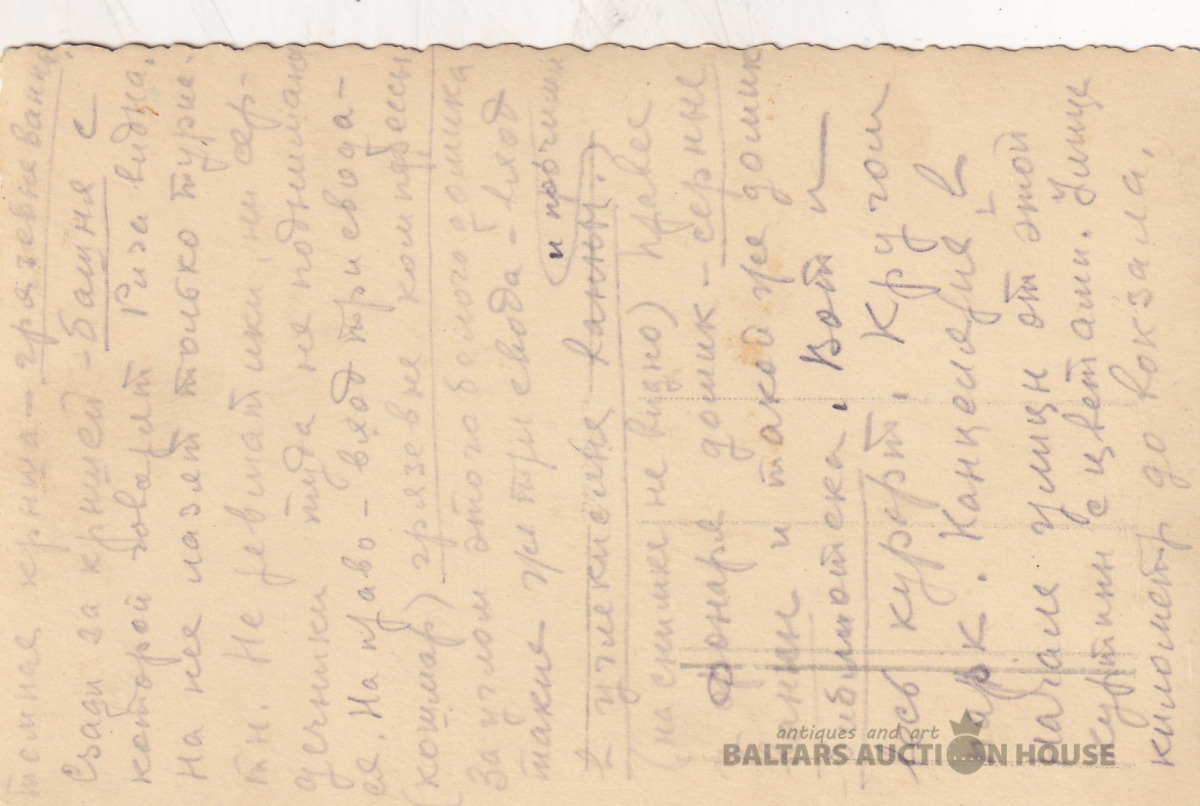 темная крыша — грязевые ванны.
Сзади за крышей — башня с
которой говорят Рига видна.
На нее лазят только тури-
ты. Не ревматики, ни сер-
дечники туда не поднимают-
ся. Направо — вход три свода —
(кошмар) грязевые компрессы
За углом этого белого домика
такие же три свода — вход
и прочими
в углекислые ванны.
(на снимке не видно) Правее
фонаря домик — серные
ванны и такой же домик
библиотека. Вот и
весь курорт. Кругом
парк. Канцелярия в
начале улицы от этой
куртины с цветами. Улице
километр до вокзала.
antiques and art
BALTARS AUCTION HOUSE